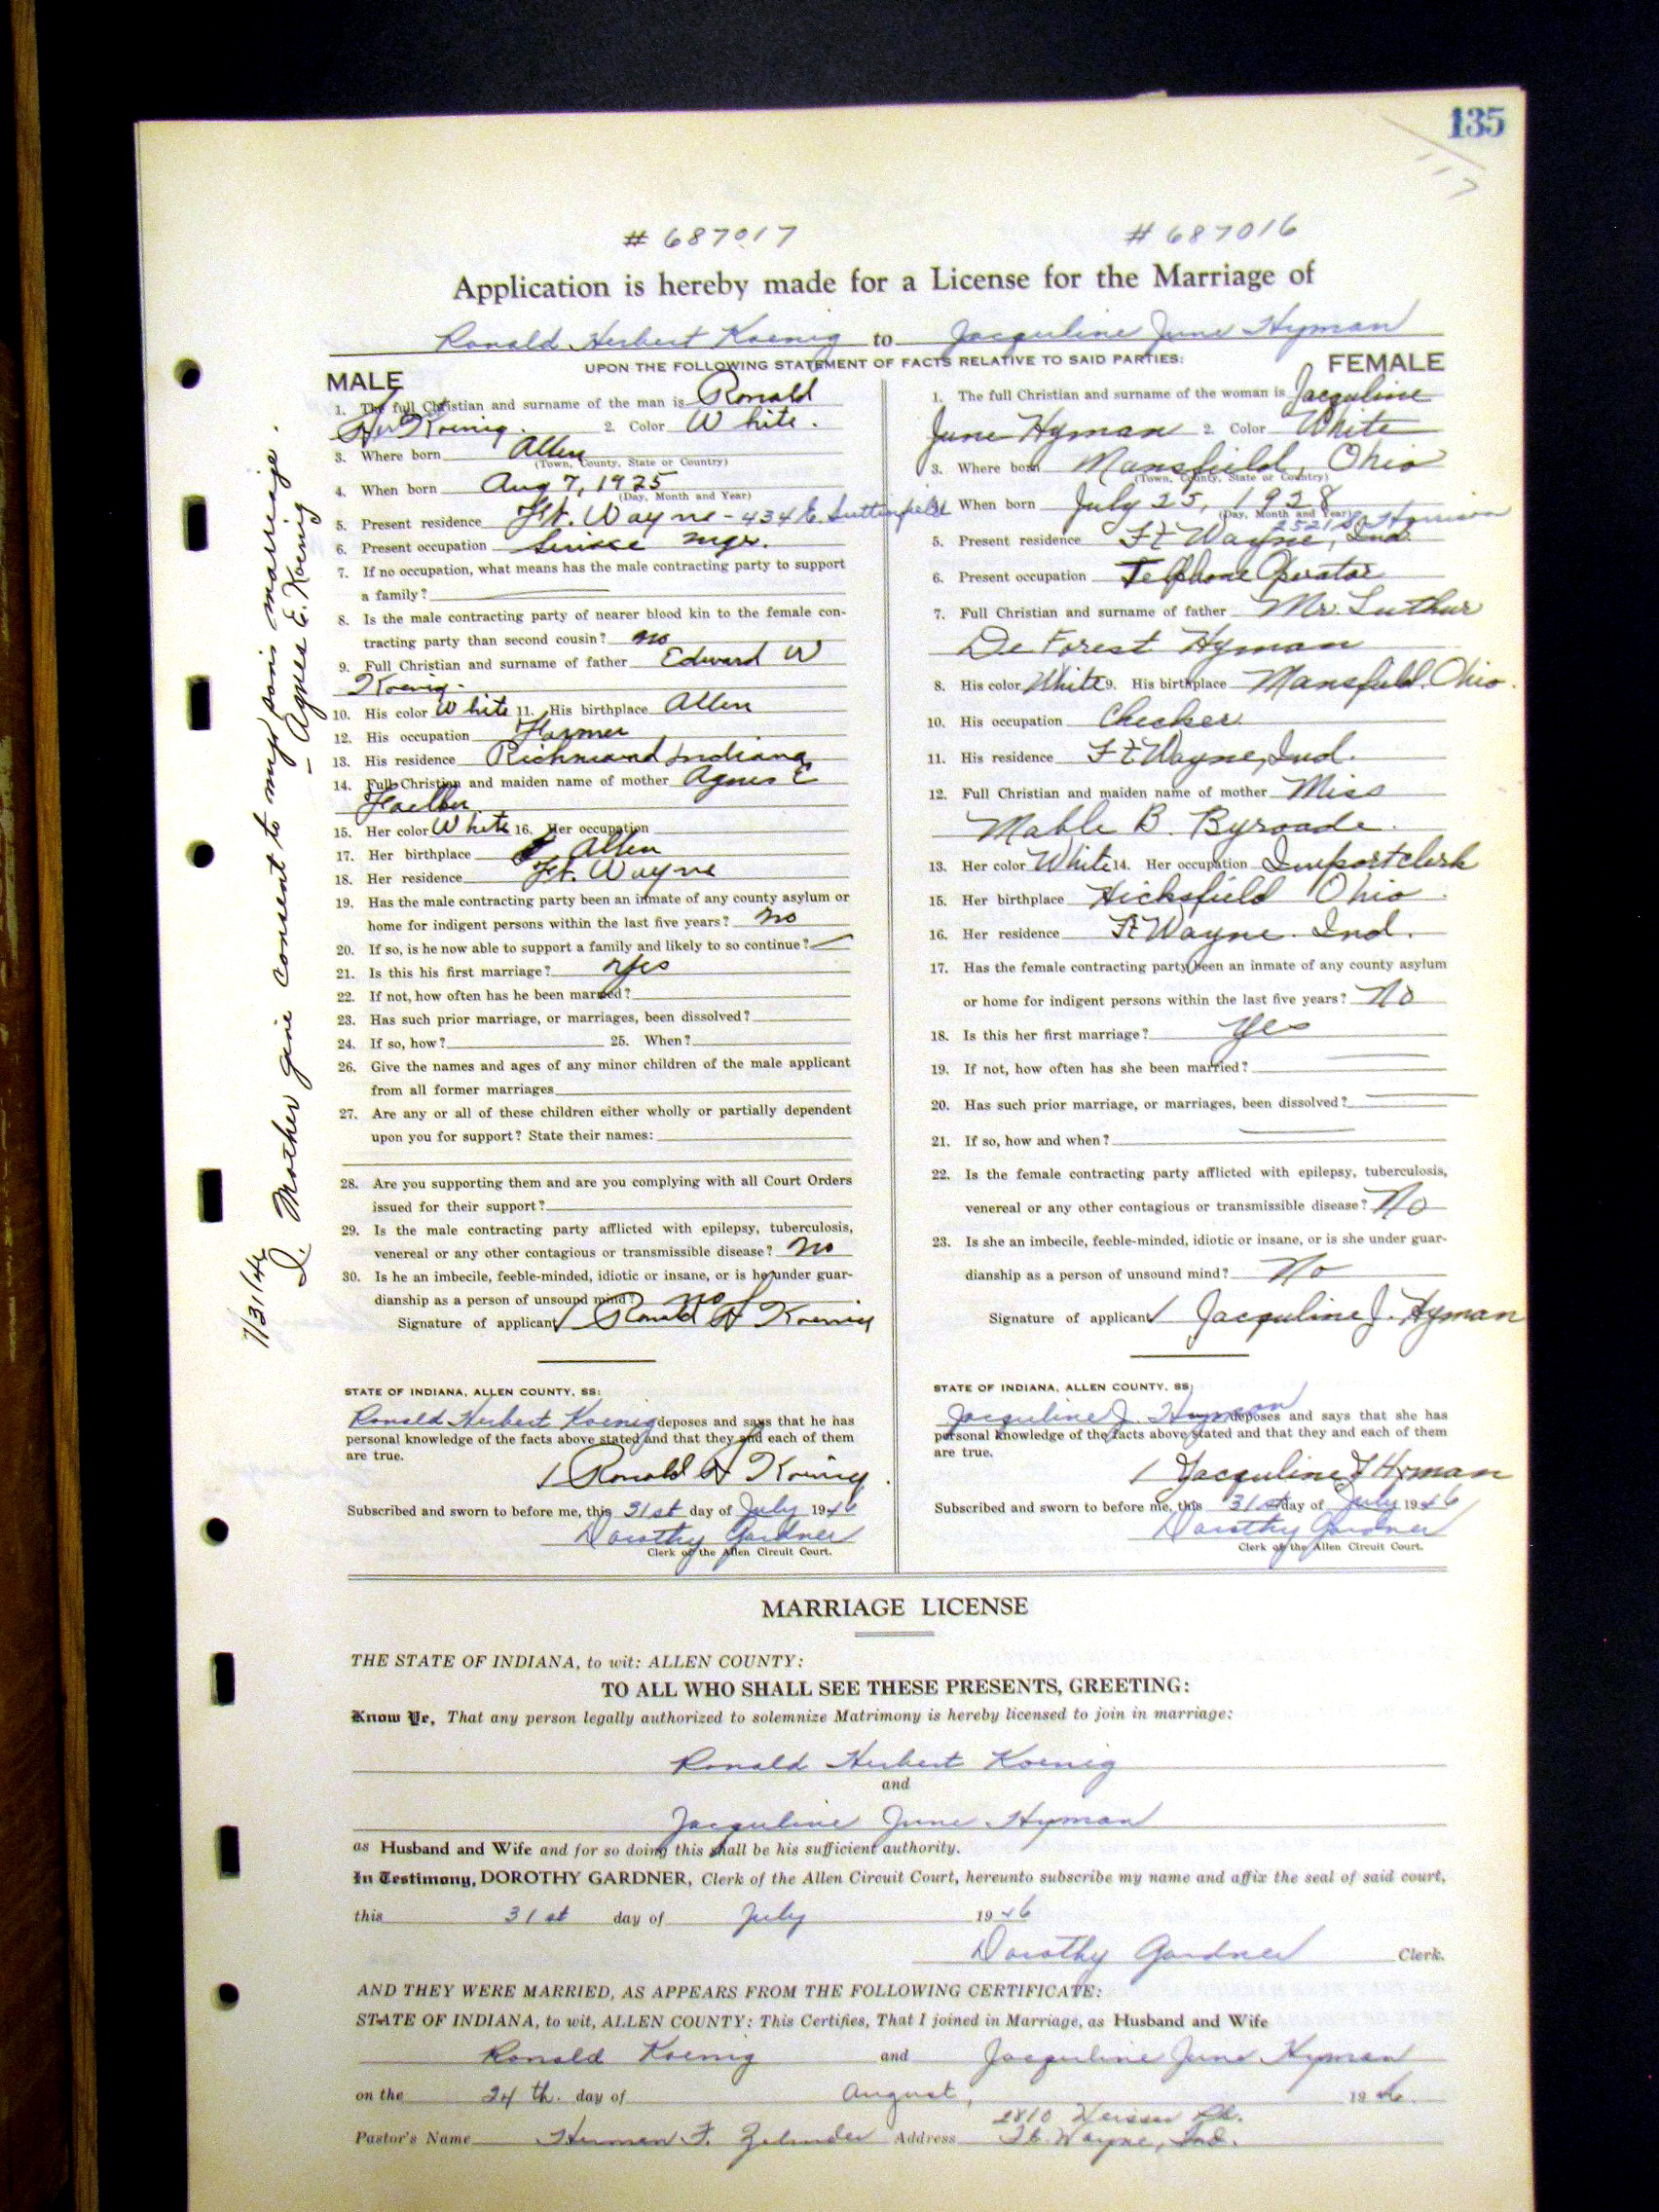 135
# 687017 # 687016
Application is hereby made for a License for the Marriage of
Ronald Herbert Koenig to Jacquline June Hyman
UPON THE FOLLOWING STATEMENT OF FACTS RELATIVE TO SAID PARTIES:
MALE
1. The full Christian and surname of the man is Ronald
Koenig. 2. Color White.
3. Where born Allen
(Town, County, State or Country)
4. When born Aug 7, 1925
(Day, Month and Year)
5. Present residence Ft. Wayne - 434 E. Suttenfield
6. Present occupation mgr.
7. If no occupation, what means has the male contracting party to support
a family?
8. Is the male contracting party of nearer blood kin to the female con-
tracting party than second cousin? no
9. Full Christian and surname of father Edward W
Koenig.
10. His color White 11. His birthplace Allen
12. His occupation Farmer
13. His residence Richmond Indiana
14. Full Christian and maiden name of mother Agnes E
15. Her color White 16. Her occupation
17. Her birthplace Allen
18. Her residence Ft. Wayne
19. Has the male contracting party been an inmate of any county asylum or
home for indigent persons within the last five years? no
20. If so, is he now able to support a family and likely to so continue?
21. Is this his first marriage? yes
22. If not, how often has he been married?
23. Has such prior marriage, or marriages, been dissolved?
24. If so, how? 25. When?
26. Give the names and ages of any minor children of the male applicant
from all former marriages
27. Are any or all of these children either wholly or partially dependent
upon you for support? State their names:
28. Are you supporting them and are you complying with all Court Orders
issued for their support?
29. Is the male contracting party afflicted with epilepsy, tuberculosis,
venereal or any other contagious or transmissible disease? no
30. Is he an imbecile, feeble-minded, idiotic or insane, or is he under guar-
dianship as a person of unsound mind? no
Signature of applicant Ronald H Koenig
STATE OF INDIANA, ALLEN COUNTY, SS:
Ronald Herbert Koenig deposes and says that he has
personal knowledge of the facts above stated and that they and each of them
are true.
Ronald H Koenig
Subscribed and sworn to before me, this 31st day of July 1946
Dorothy Gardner
Clerk of the Allen Circuit Court.
FEMALE
1. The full Christian and surname of the woman is Jacquline
June Hyman 2. Color White
3. Where born Mansfield, Ohio
(Town, County, State or Country)
When born July 25, 1928
(Day, Month and Year)
2521 So Harrison
5. Present residence Ft Wayne, Ind.
6. Present occupation Telphone Operator
7. Full Christian and surname of father Mr. Luthur
De Forest Hyman
8. His color White 9. His birthplace Mansfield. Ohio.
10. His occupation Checker
11. His residence Ft Wayne, Ind.
12. Full Christian and maiden name of mother Miss
Mable B. Byroade.
13. Her color White 14. Her occupation Import clerk
15. Her birthplace Hicksfield Ohio
16. Her residence Ft Wayne. Ind.
17. Has the female contracting party been an inmate of any county asylum
or home for indigent persons within the last five years? No
18. Is this her first marriage? yes
19. If not, how often has she been married?
20. Has such prior marriage, or marriages, been dissolved?
21. If so, how and when?
22. Is the female contracting party afflicted with epilepsy, tuberculosis,
venereal or any other contagious or transmissible disease? No
23. Is she an imbecile, feeble-minded, idiotic or insane, or is she under guar-
dianship as a person of unsound mind? No
Signature of applicant Jacquline J. Hyman
STATE OF INDIANA, ALLEN COUNTY, SS:
Jacquline J. Hyman deposes and says that she has
personal knowledge of the facts above stated and that they and each of them
are true.
Jacquline J Hyman
Subscribed and sworn to before me, this 31st day of July 1946
Dorothy Gardner
Clerk of the Allen Circuit Court.
7/31/46
I. Mother give consent to my son's marriage.
- Agnes E. Koenig
MARRIAGE LICENSE
THE STATE OF INDIANA, to wit: ALLEN COUNTY:
TO ALL WHO SHALL SEE THESE PRESENTS, GREETING:
Know Ye, That any person legally authorized to solemnize Matrimony is hereby licensed to join in marriage:
Ronald Herbert Koenig
and
Jacquline June Hyman
as Husband and Wife and for so doing this shall be his sufficient authority.
In Testimony, DOROTHY GARDNER, Clerk of the Allen Circuit Court, hereunto subscribe my name and affix the seal of said court,
this 31st day of July 1946
Dorothy Gardner Clerk.
AND THEY WERE MARRIED, AS APPEARS FROM THE FOLLOWING CERTIFICATE:
STATE OF INDIANA, to wit, ALLEN COUNTY: This Certifies, That I joined in Marriage, as Husband and Wife
Ronald Koenig and Jacquline June Hyman
on the 24th. day of August, 1946.
2810 Rd.
Pastor's Name Herman F. Address Ft. Wayne, Ind.